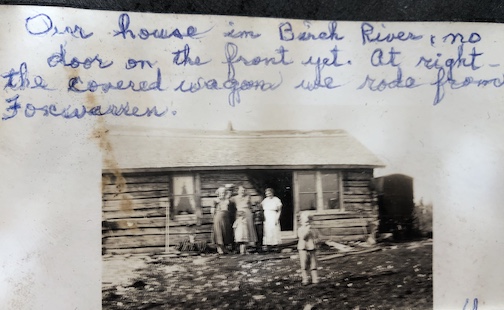 Our house in Birch River, no
door on the front yet. At right -
the covered wagon we rode from
Foxwarren.